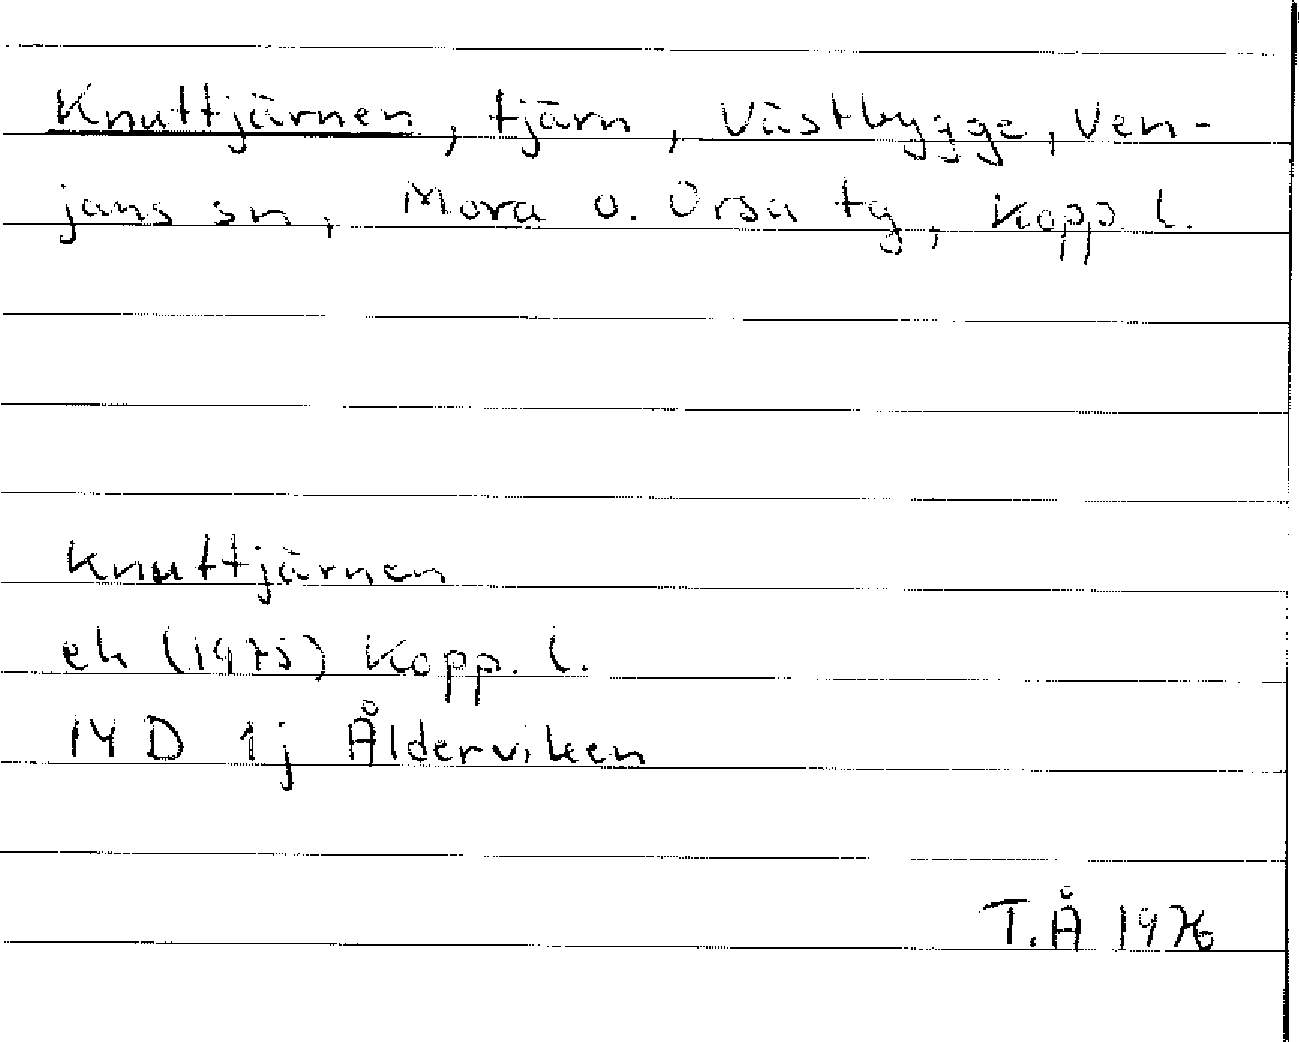 Knuttjärnen, tjärn, Västbygge, Ven-
jans sn, Mora o. Orsa tg, Kopp. l.
Knuttjärnen
ek (1975) Kopp. l.
14 D 1j Ålderviken
T.Å 1976